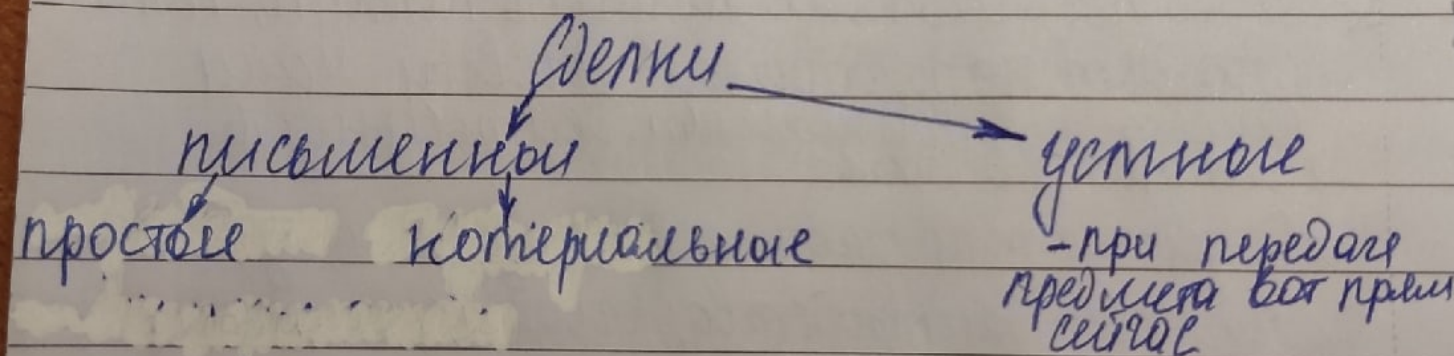 Сделки
письменные устные
простые нотериальные - при передаче
предмета вот прям
сейчас